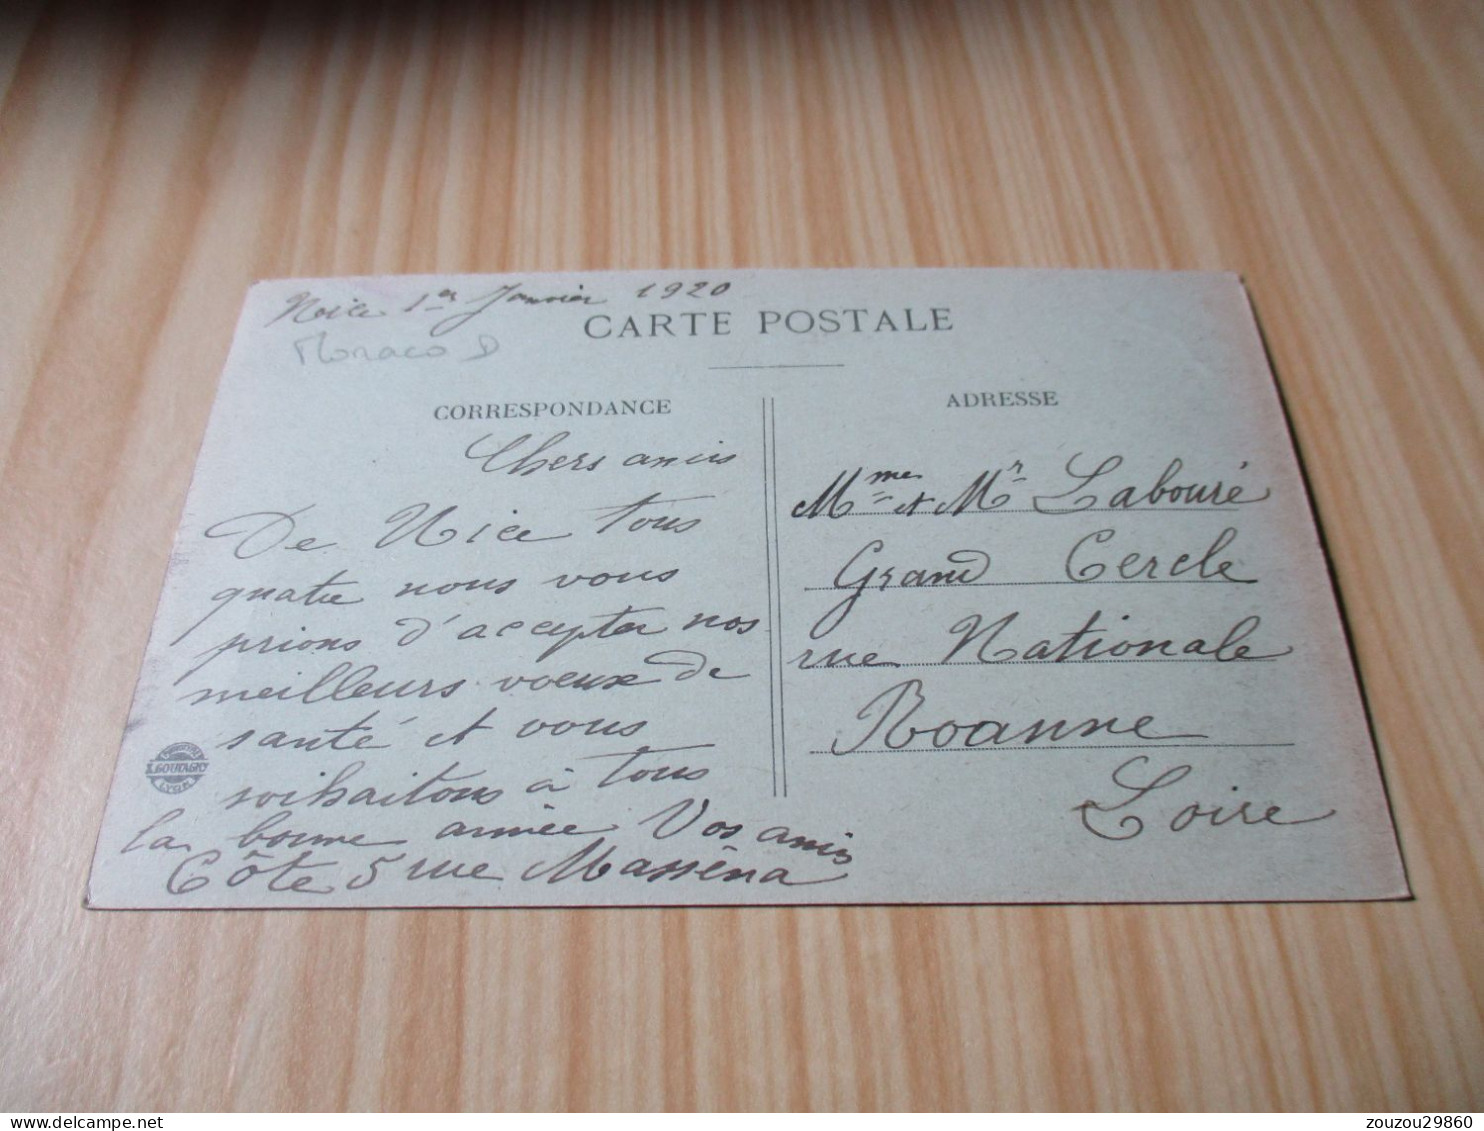 Nice 1er Janvier 1920
Monaco D
CARTE POSTALE
CORRESPONDANCE
ADRESSE
Chers amis
De Nice tous
quatre nous vous
prions d'accepter nos
meilleurs voeux de
santé et vous
souhaitons à tous
la bonne année Vos amis
Côte 5 rue Masséna
Mmes et Mr Labouré
Grand Cercle
rue Nationale
Roanne
Loire
LYON
delcampe.net
zouzou29860